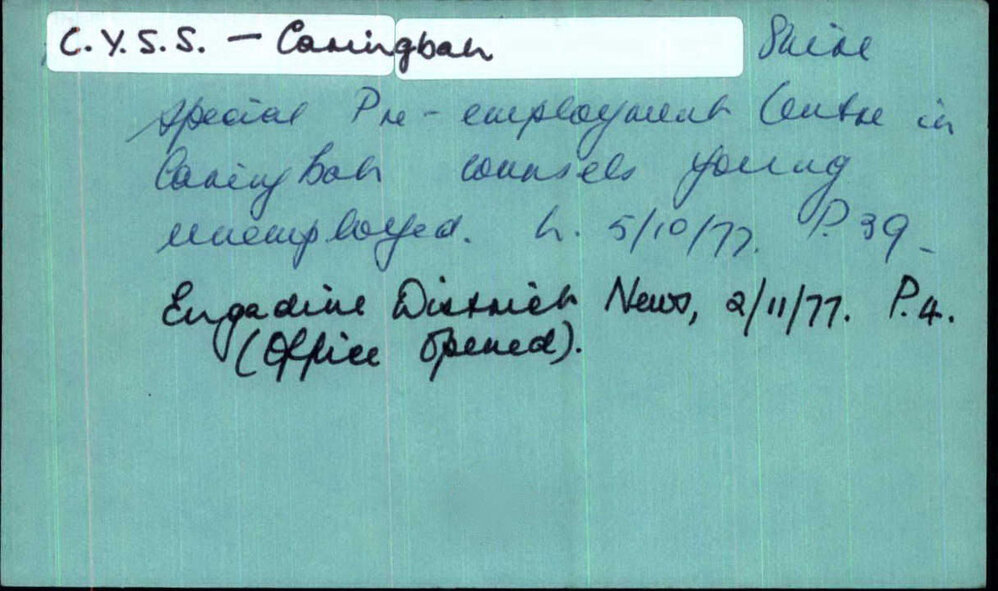 C.Y.S.S. — Caringbah Shire
special Pre-employment Centre in
Caringbah counsels young
unemployed. L. 5/10/77. P.39-
Engadine District News, 2/11/77. P.4.
(Office Opened).